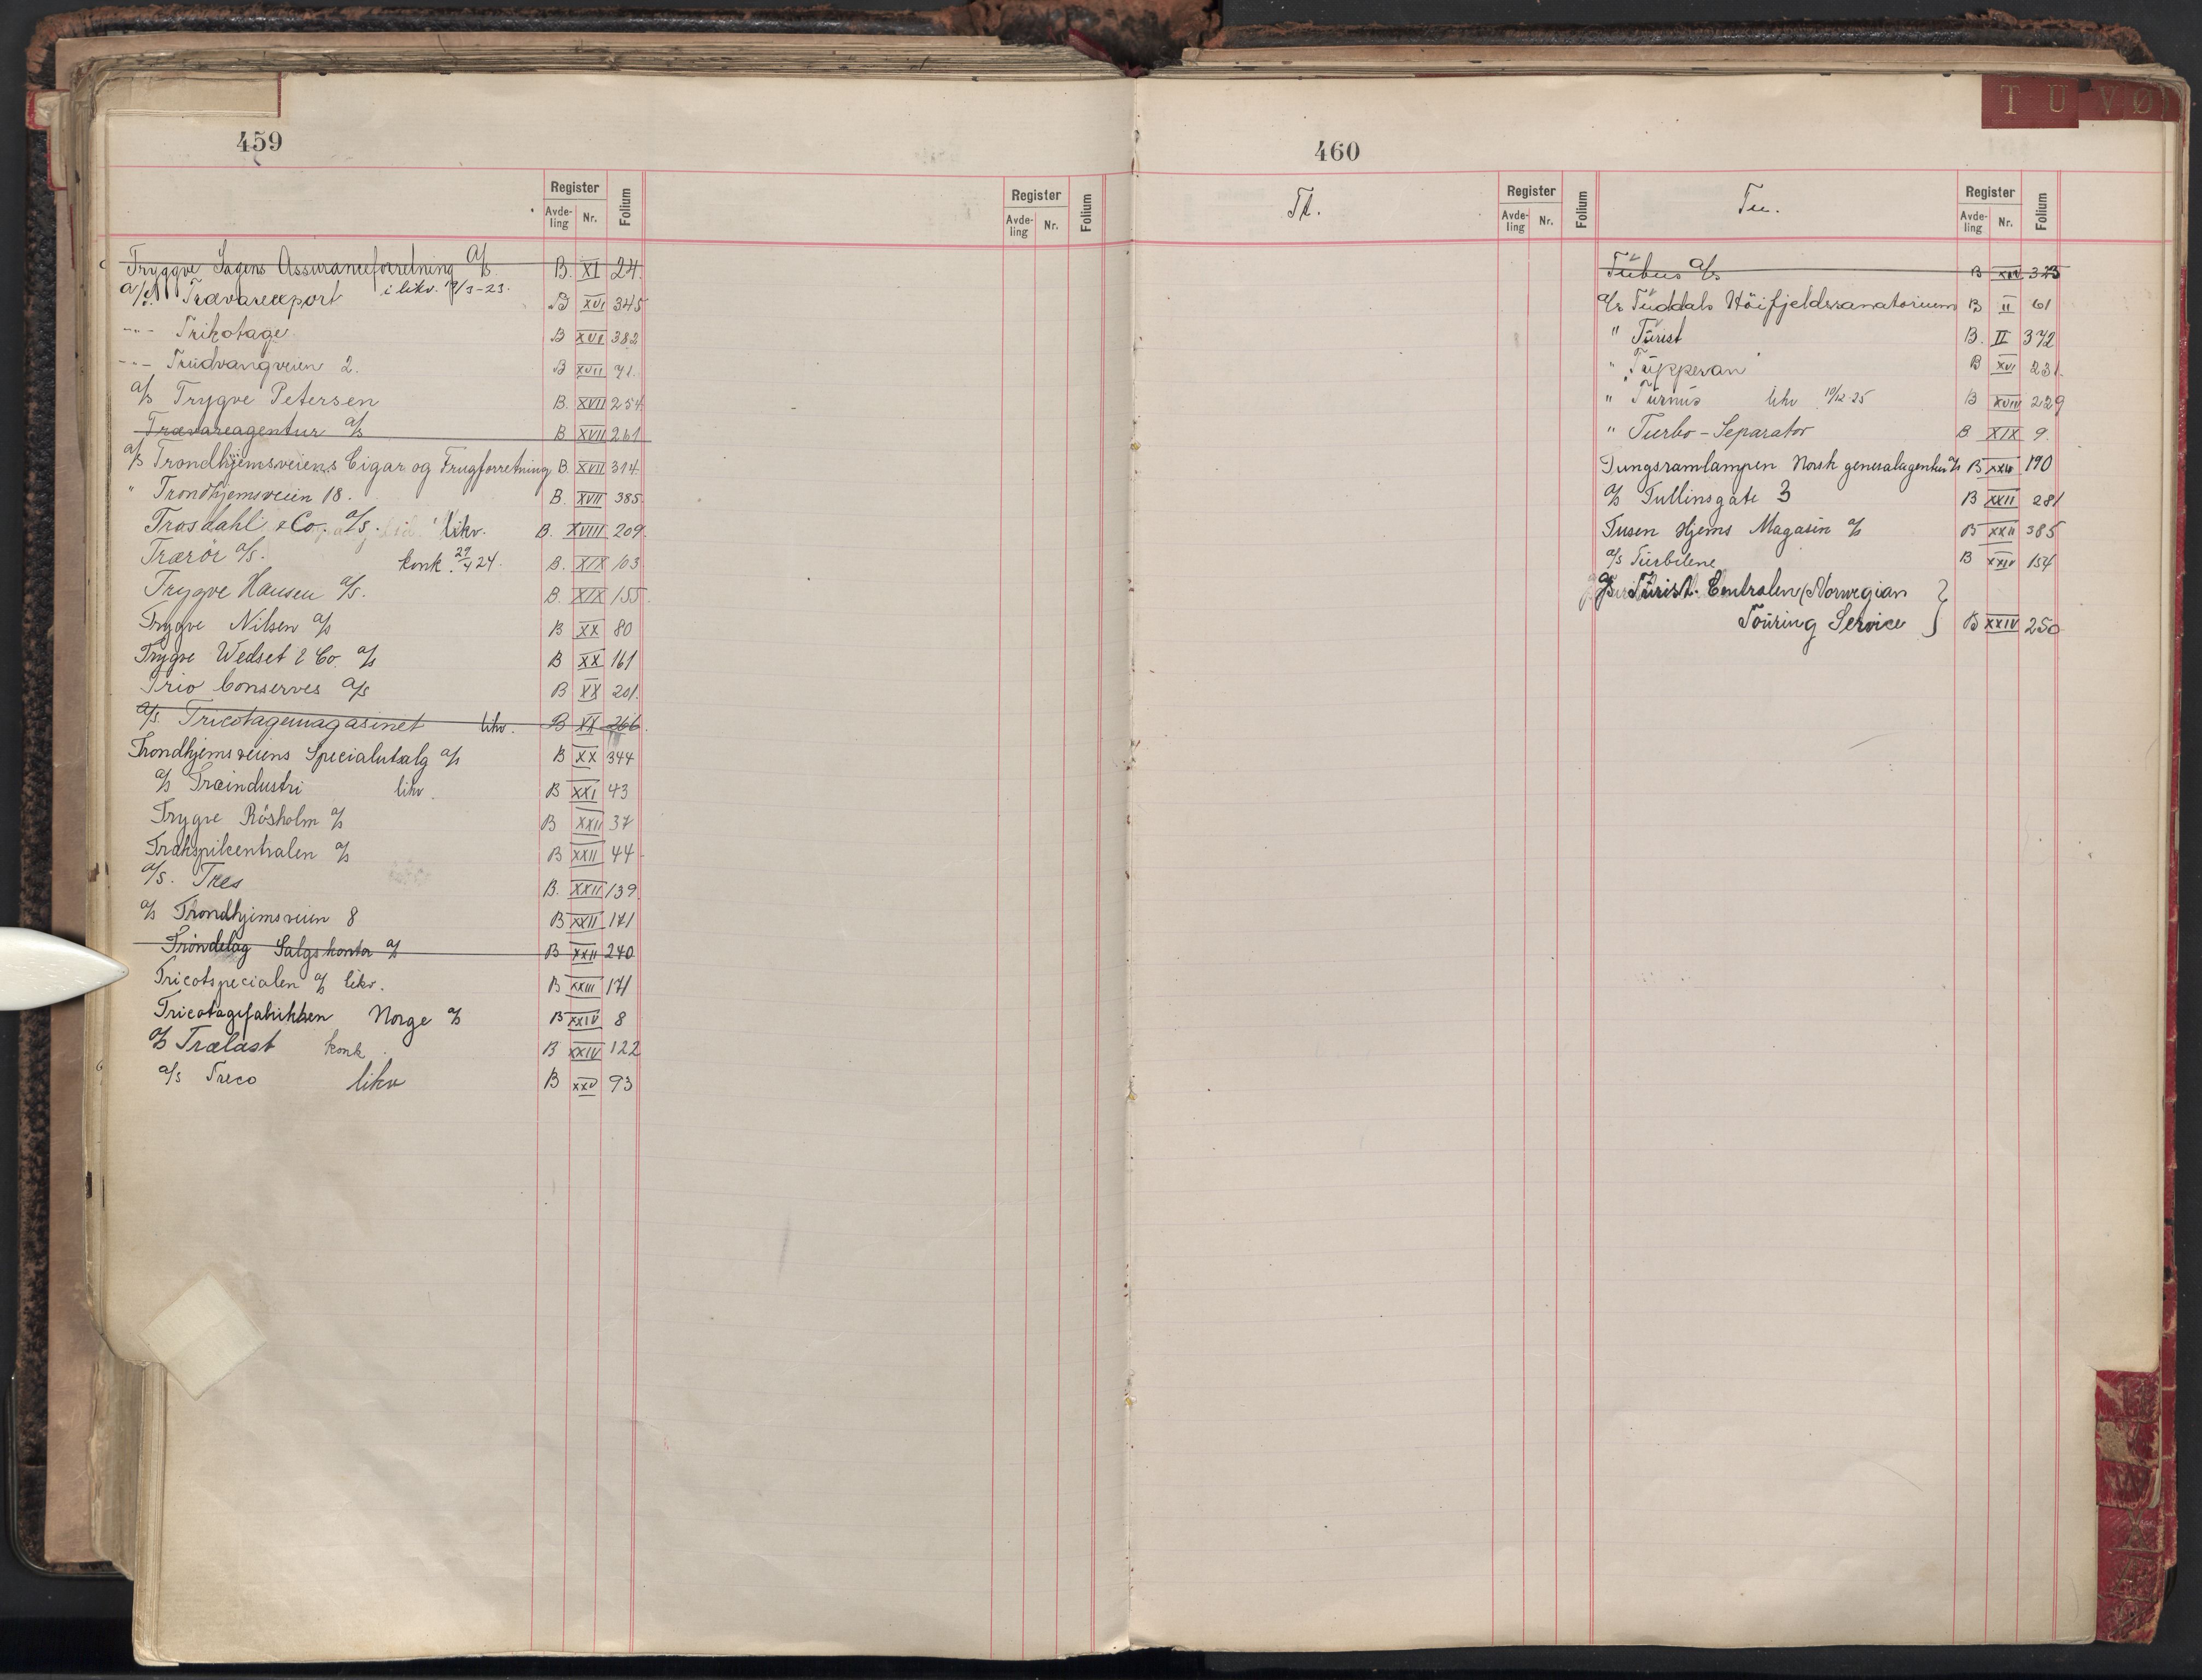 459
Register
Avde-
ling
Nr.
Folium
Register
Avde-
ling
Nr.
Folium
Tryggve Sagens Assuranceforretning A/S. B. XI 24.
A/S Trævareexport i likv. B XVI 345
-"- Trikotage B XVI 382
-"- Trudvangveien 2. B XVII 71.
A/S Trygve Petersen B. XVII 254.
Trævareagentur A/S B XVII 261
A/S Trondhjemsveiens Cigar og Frugtforretning B. XVII 314
" Trondhjemsveien 18. B. XVII 385
Trosdahl & Co. A/S. likv. B. XVIII 209.
Trærör A/S. konk. 29/4 24. B. XIX 103
Trygve Hansen A/S. B. XIX 155.
Trygve Nilsen A/S B XX 80
Trygve Wedset & Co. A/S B XX 161
Trio Conserves A/S B XX 201.
A/S. Tricotagemagasinet likv. B XX 266.
Trondhjemsveiens Specialutsalg A/S B XX 344
A/S Træindustri likv. B XXI 43
Trygve Rösholm A/S B XXII 37
Trækspilcentralen A/S B XXII 44
A/S. Tres B. XXII 139
A/S Trondhjemsveien 8 B XXII 171
Tröndelag Salgskontor A/S B XXII 240
Tricotspecialen A/S likv. B XXIII 171
Tricotagefabrikken Norge A/S B XXIV 8
A/S Trælast konk. B XXIV 122
A/S Treco likv B XXV 93
T U V Ø
460
Register
Avde-
ling
Nr.
Folium
Tu.
Register
Avde-
ling
Nr.
Folium
Tubus A/S B XIV 373
A/S Tuddals Höifjeldssanatorium B II 61
" Turist B. II 372
" Tüpperan B XVI 231.
" Turnus likv 19/12-25 B XVIII 229
" Turbo-Separator B XIX 9.
Tungsramlampen Norsk generalagentur A/S B XXII 190
A/S Tullinsgate 3 B XXII 281
Tusen Hjems Magasin A/S B XXII 385
A/S Turbilene B XXIV 154
A/S Turist-Centralen (Norwegian
Touring Service } B XXIV 250